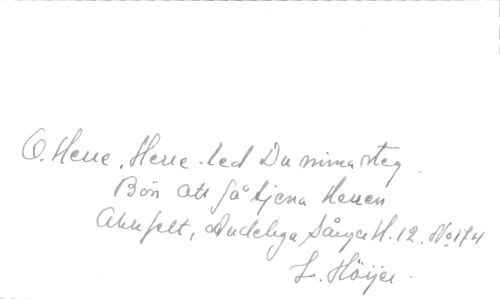 O. Herre, Herre led Du mina steg.
Bön att få tjena Herren
Ahnfelt, Andeliga Sånger H. 12. No 174
L. Höijer.